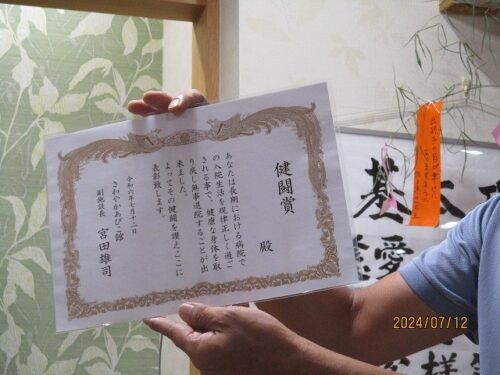 健闘賞
殿
あなたは長期における病院で
の入院生活を規律正しく過ご
される事で、健康な身体を取
り戻し無事退院することが出
来ました。
よってその健闘を讃えここに
表彰致します。
令和六年七月十二日
さわやかあびこ館
副施設長 宮田雄司
基
愛
様
2024/07/12